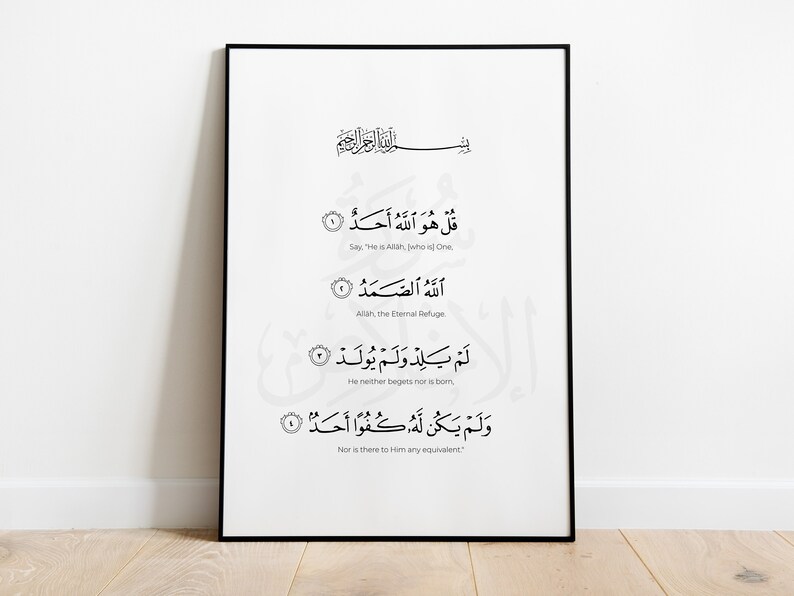 بِسْمِ اللَّهِ الرَّحْمَٰنِ الرَّحِيمِ
سورة
الإخلاص
قُلْ هُوَ ٱللَّهُ أَحَدٌ ١
Say, "He is Allāh, [who is] One,
ٱللَّهُ ٱلصَّمَدُ ٢
Allāh, the Eternal Refuge.
لَمْ يَلِدْ وَلَمْ يُولَدْ ٣
He neither begets nor is born,
وَلَمْ يَكُن لَّهُۥ كُفُوًا أَحَدٌۢ ٤
Nor is there to Him any equivalent."